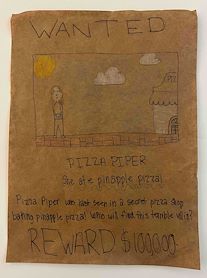 WANTED
PIZZA PIPER
She ate pinapple pizza!
Pizza Piper was last seen in a secret pizza shop
baking pinapple pizza! Who will find this terrible villin?
REWARD $100,000